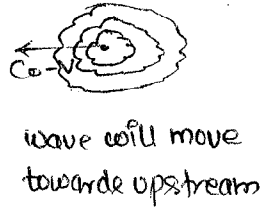 Co-V
wave will move
towards upstream